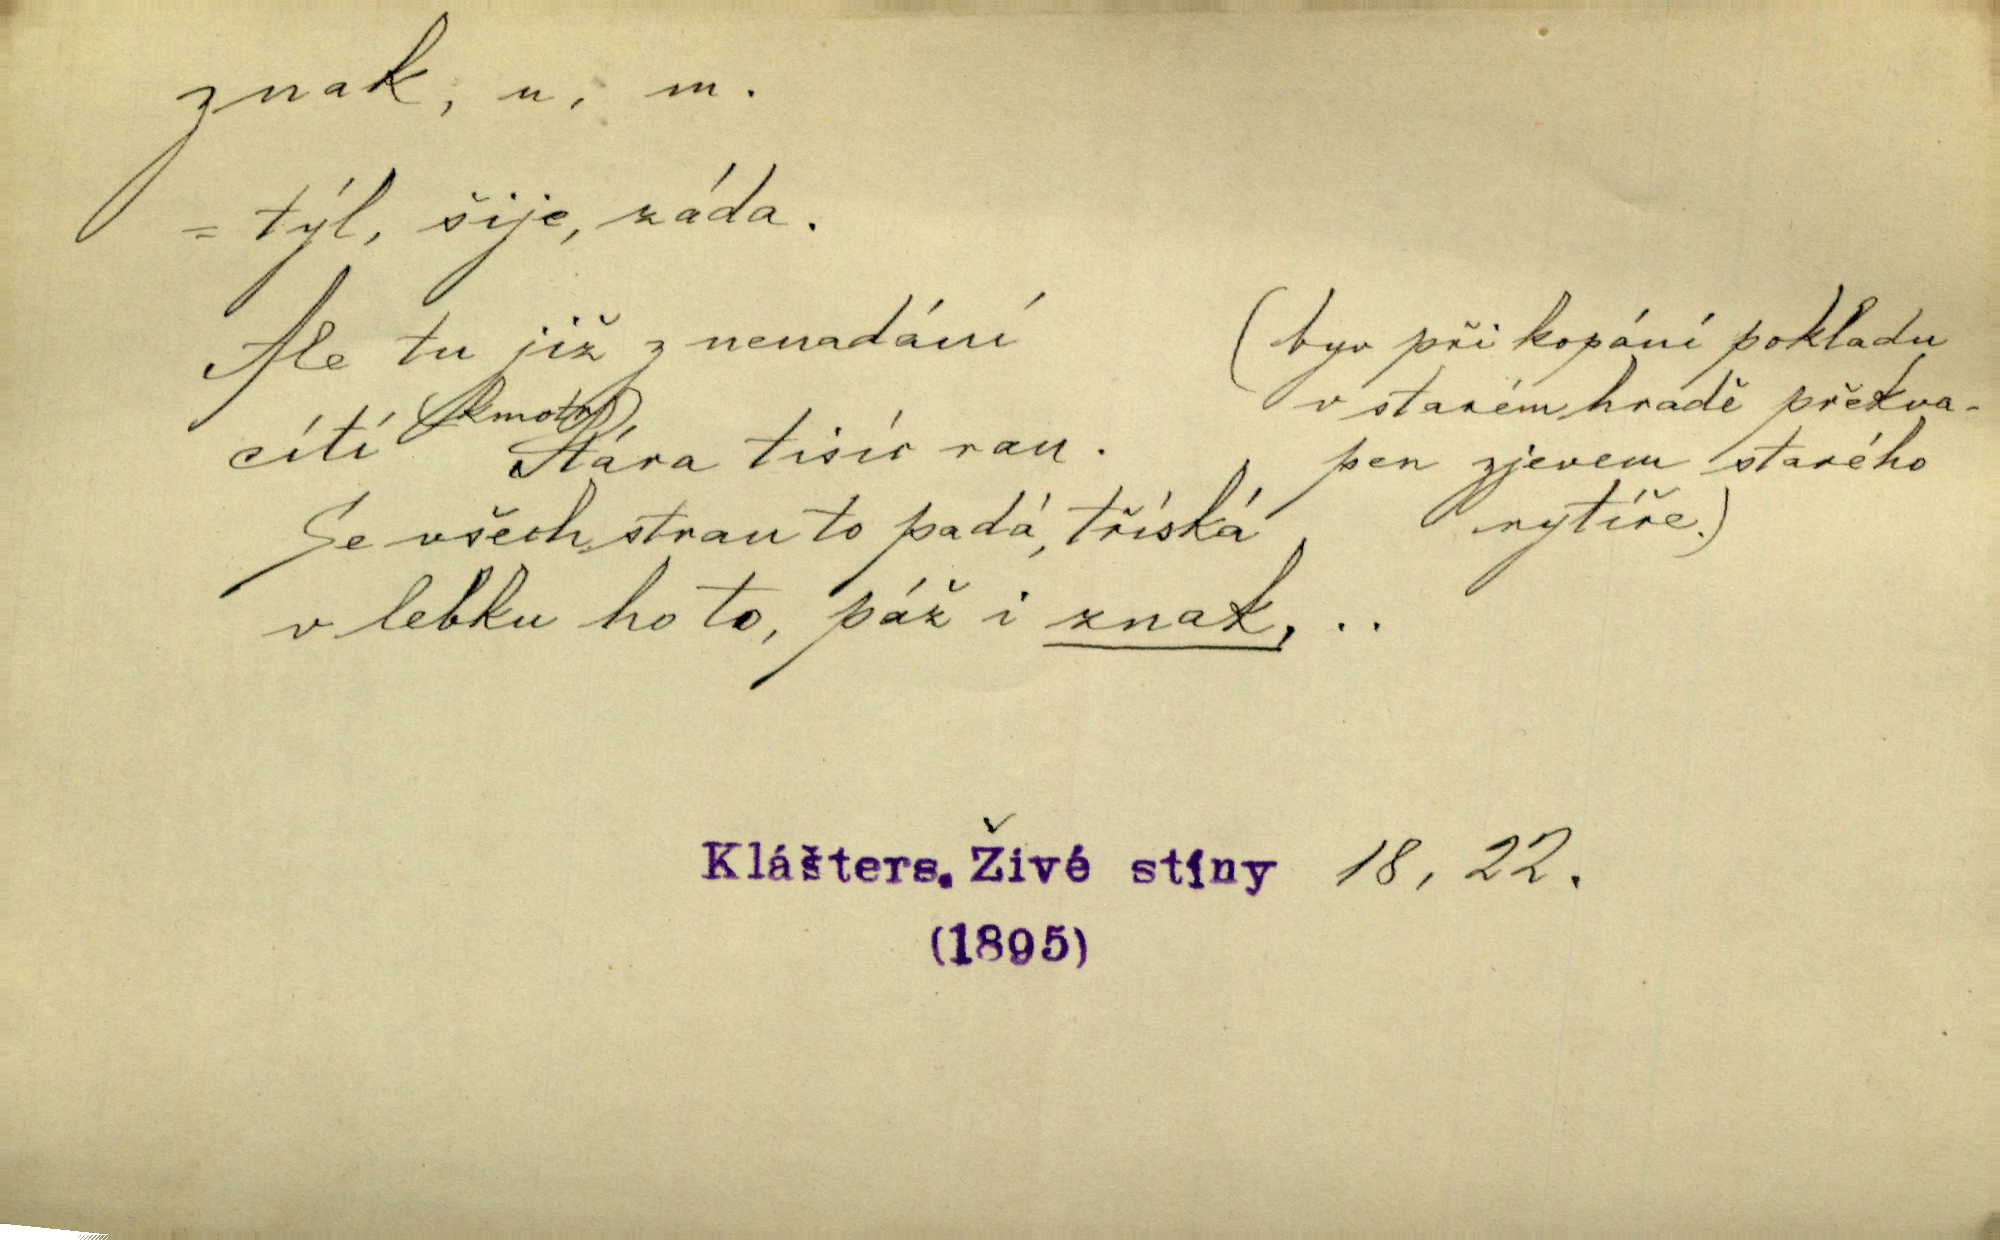 znak, u, m.
= týl, šije, záda.
Ale tu již z nenadání
cítí (kmotr) Stára tisíc ran.
Se všech stran to padá, tříská
v lebku ho to, páž i znak, ..
(byv při kopání pokladu
v starém hradě překva-
pen zjevem starého
rytíře.)
Klášters. Živé stíny 18, 22.
(1895)